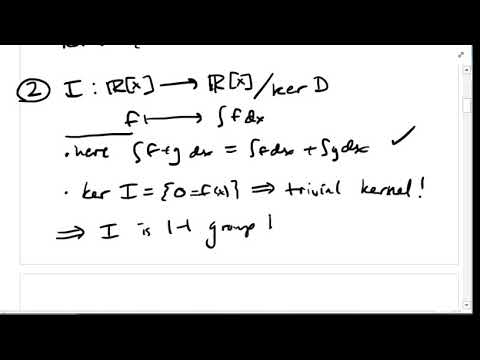 ② I : ℝ[x] ⟶ ℝ[x]/ker D
f ⟼ ∫f dx
• here ∫f+g dx = ∫f dx + ∫g dx ✓
• ker I = {0 = f(x)} ⟹ trivial kernel!
⟹ I is 1-1 group